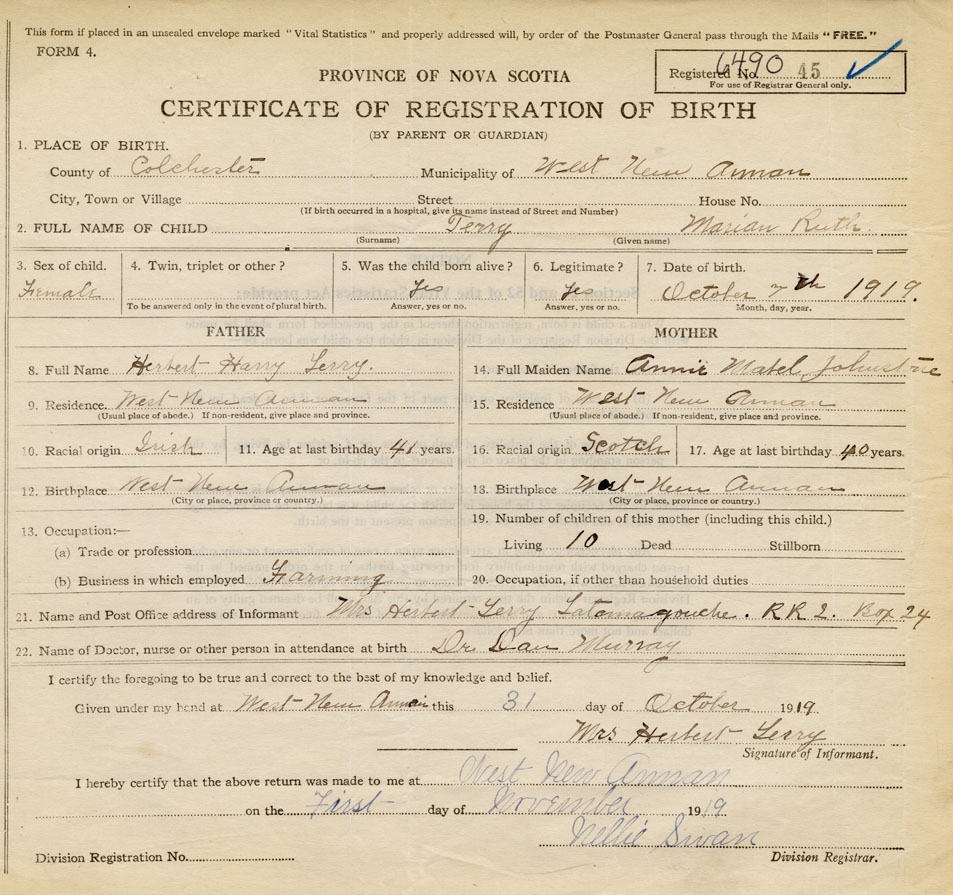 This form if placed in an unsealed envelope marked "Vital Statistics" and properly addressed will, by order of the Postmaster General pass through the Mails "FREE."
FORM 4.
Registered No. 6490 45
For use of Registrar General only.
PROVINCE OF NOVA SCOTIA
CERTIFICATE OF REGISTRATION OF BIRTH
(BY PARENT OR GUARDIAN)
1. PLACE OF BIRTH.
County of Colchester Municipality of West New Annan
City, Town or Village Street House No.
(If birth occurred in a hospital, give its name instead of Street and Number)
2. FULL NAME OF CHILD Terry Marian Ruth
(Surname) (Given name)
3. Sex of child. 4. Twin, triplet or other? 5. Was the child born alive? 6. Legitimate? 7. Date of birth.
Female Yes Yes October 7th 1919.
To be answered only in the event of plural birth. Answer, yes or no. Answer, yes or no. Month, day, year.
FATHER MOTHER
8. Full Name Herbert Harry Terry. 14. Full Maiden Name Annie Mabel Johnstone
9. Residence. West New Annan 15. Residence West New Annan
(Usual place of abode.) If non-resident, give place and province. (Usual place of abode.) If non-resident, give place and province.
10. Racial origin Irish 11. Age at last birthday 41 years. 16. Racial origin Scotch 17. Age at last birthday 40 years.
12. Birthplace West New Annan 18. Birthplace West New Annan
(City or place, province or country.) (City or place, province or country.)
13. Occupation:— 19. Number of children of this mother (including this child.)
(a) Trade or profession Living 10 Dead Stillborn
(b) Business in which employed Farming 20. Occupation, if other than household duties
21. Name and Post Office address of Informant Mrs Herbert Terry Tatamagouche. RR 2. Box 24
22. Name of Doctor, nurse or other person in attendance at birth Dr. Dan Murray
I certify the foregoing to be true and correct to the best of my knowledge and belief.
Given under my hand at West New Annan this 31 day of October 1919.
Mrs Herbert Terry
Signature of Informant.
I hereby certify that the above return was made to me at West New Annan
on the First day of November 1919
Nellie Swan
Division Registration No. Division Registrar.